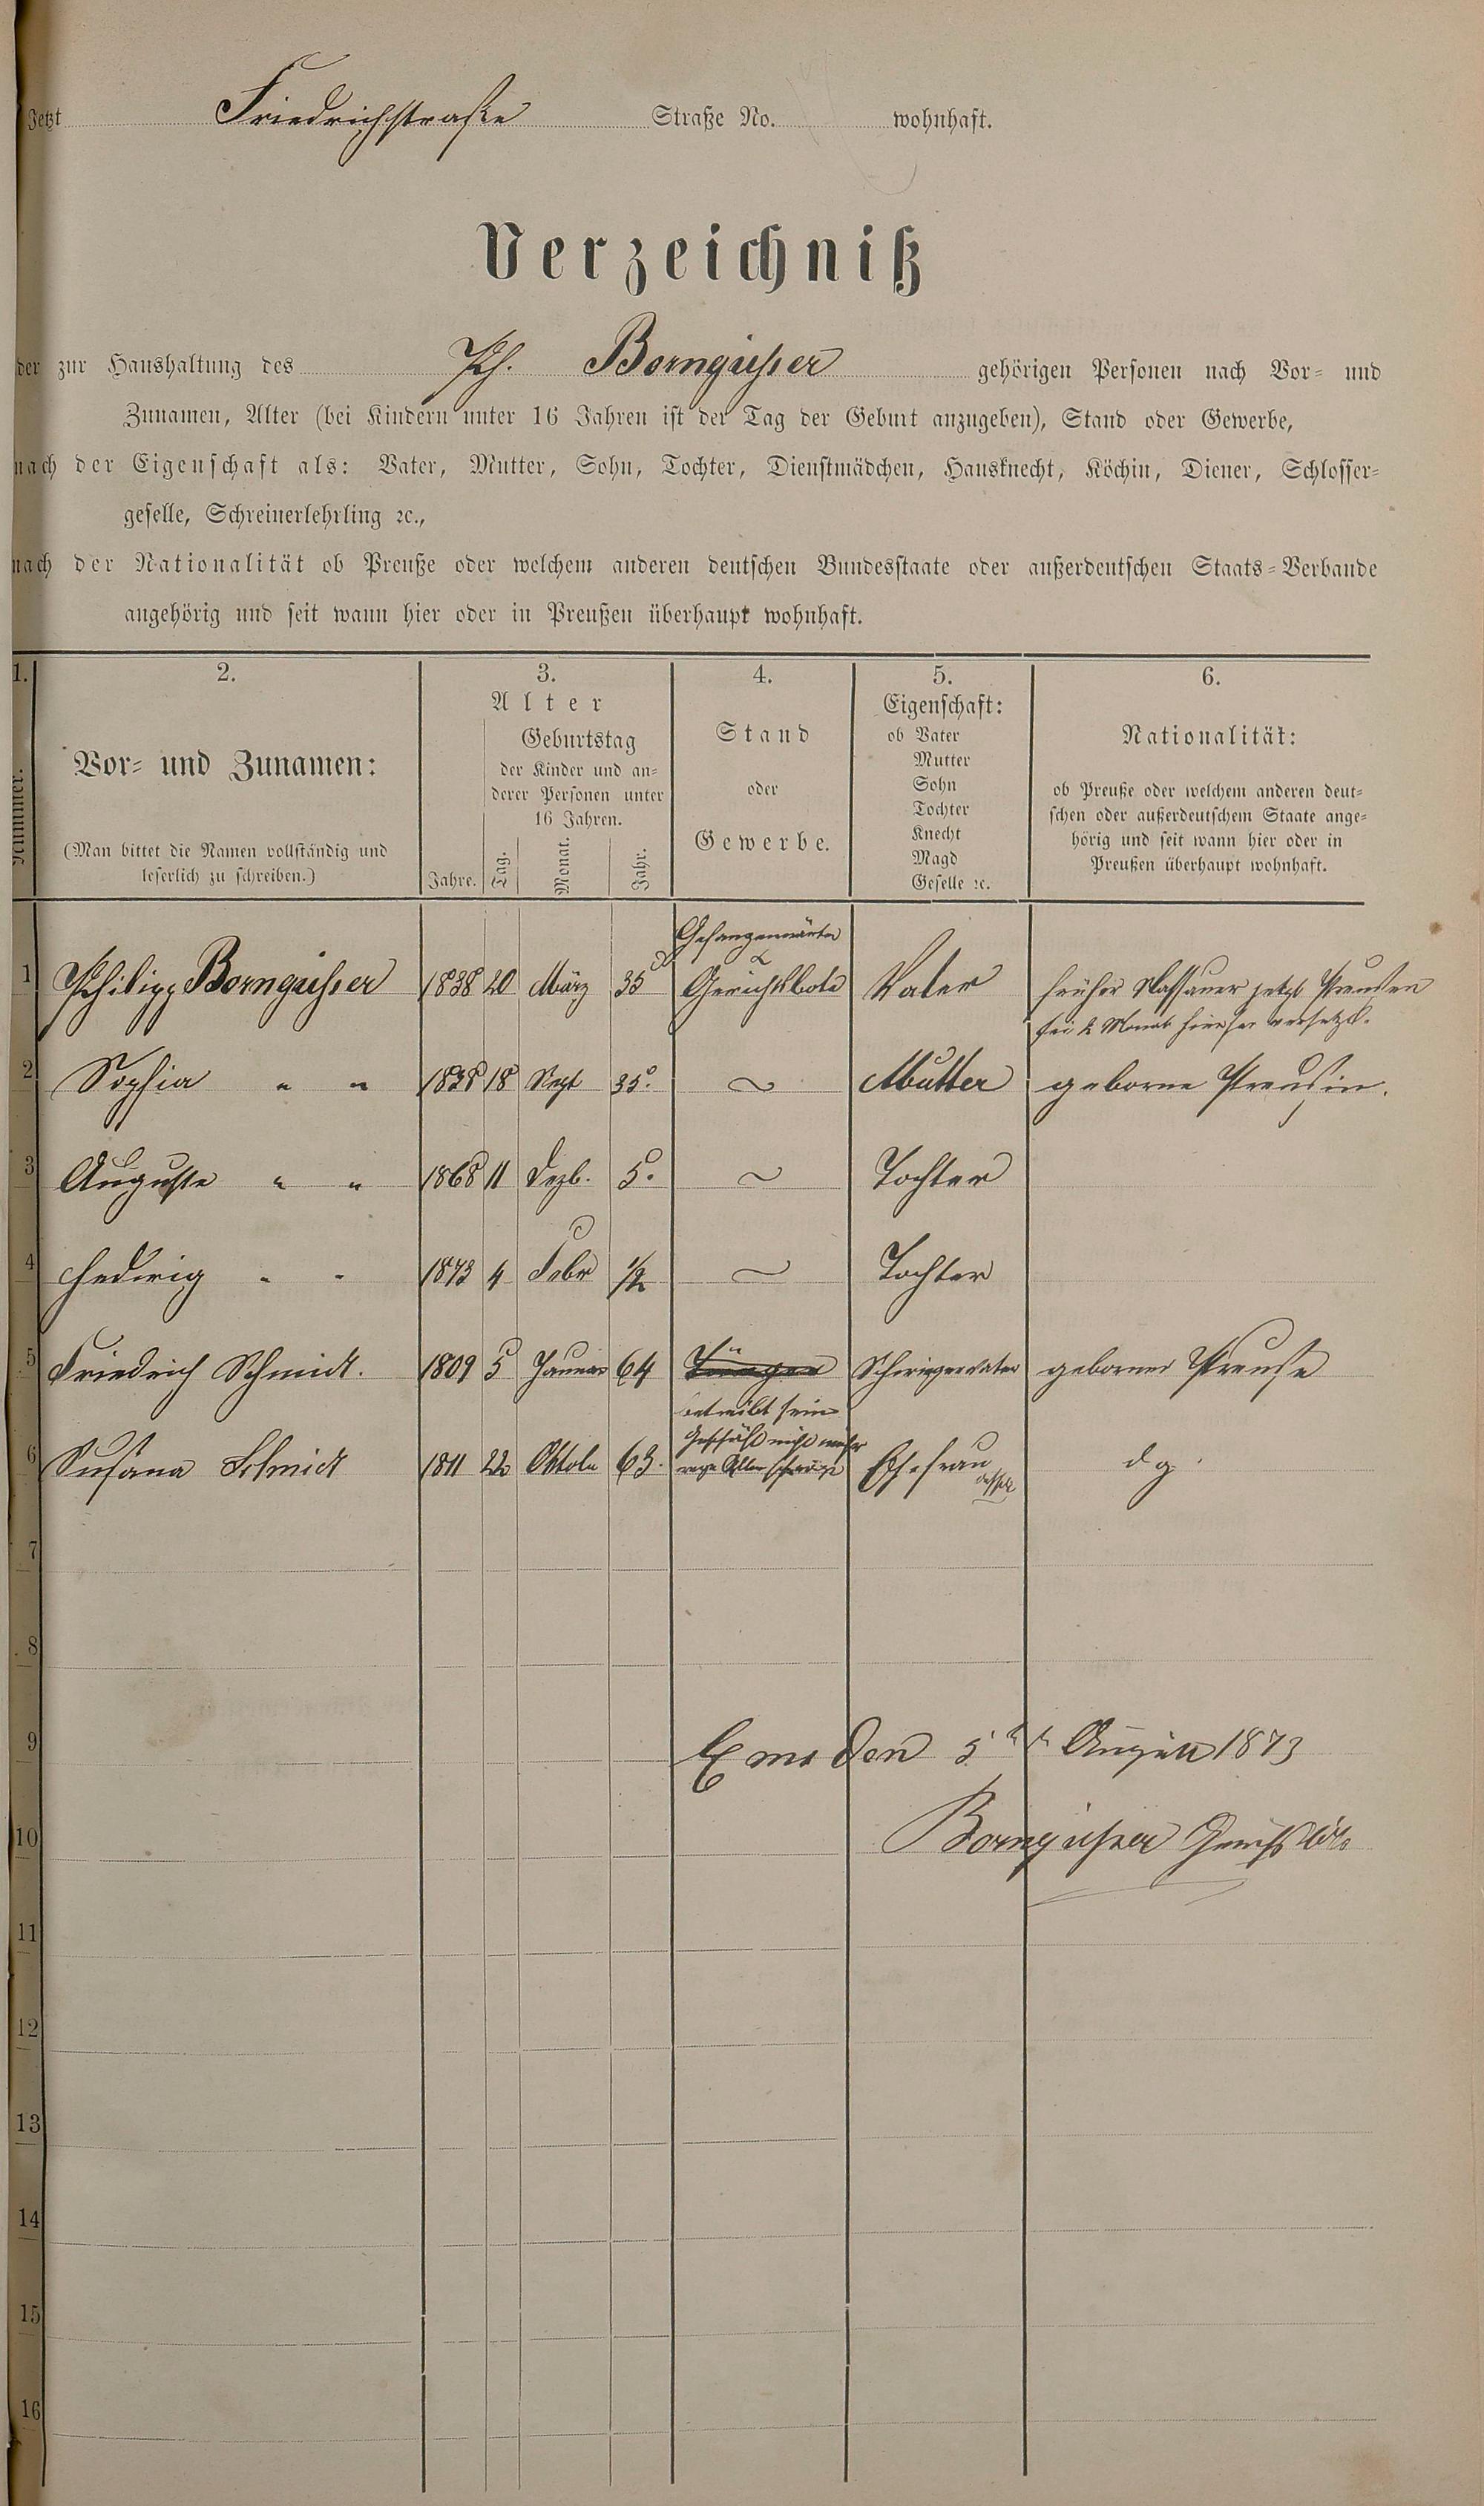 Jetzt Friedrichstraße Straße No. wohnhaft.
Verzeichniß
der zur Haushaltung des Ph. Borngießer gehörigen Personen nach Vor- und
Zunamen, Alter (bei Kindern unter 16 Jahren ist der Tag der Geburt anzugeben), Stand oder Gewerbe,
nach der Eigenschaft als: Vater, Mutter, Sohn, Tochter, Dienstmädchen, Hausknecht, Köchin, Diener, Schlosser-
geselle, Schreinerlehrling ꝛc.,
nach der Nationalität ob Preuße oder welchem anderen deutschen Bundesstaate oder außerdeutschen Staats-Verbande
angehörig und seit wann hier oder in Preußen überhaupt wohnhaft.
1.
Nummer.
2.
Vor- und Zunamen:
(Man bittet die Namen vollständig und
leserlich zu schreiben.)
3.
Alter
Geburtstag
der Kinder und an-
derer Personen unter
16 Jahren.
Jahre. Tag. Monat. Jahr.
4.
Stand
oder
Gewerbe.
5.
Eigenschaft:
ob Vater
Mutter
Sohn
Tochter
Knecht
Magd
Geselle ꝛc.
6.
Nationalität:
ob Preuße oder welchem anderen deut-
schen oder außerdeutschem Staate ange-
hörig und seit wann hier oder in
Preußen überhaupt wohnhaft.
Gefangenwärter
&
1 Philipp Borngießer 1838 20 März 35 Gerichtsbote Vater früher Nassauer jetzt Preußen
sei 2 Monat hierher versetzt.
2 Sophia " " 1838 18 Sept 35. ~ Mutter geborne Preußin.
3 Auguste " " 1868 11 Dezb. 5. ~ Tochter
4 Hedwig " " 1873 4 Febr ½ ~ Tochter
5 Friedrich Schmidt. 1809 5 Januar 64 Schwiegervater geborner Preuße
betreibt sein
Geschäft nicht mehr
6 Susana Schmidt 1811 22 Oktobr 63. Ehefrau dg.
7
8
9 Ems den 5ten August 1873
10 Borngießer Gerichtsbote
11
12
13
14
15
16